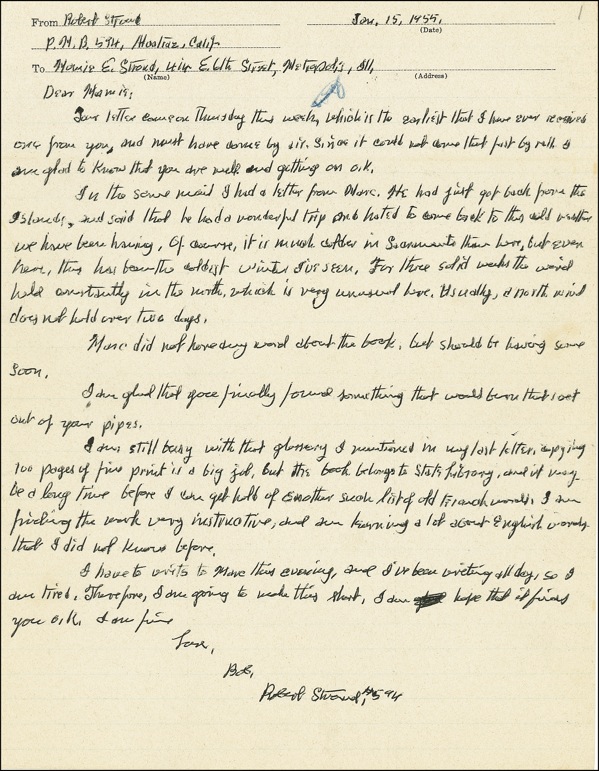 1
From Robert Stroud Jan. 15, 1955.
(Date)
P.M.B. 594, Alcatraz, Calif.
To Mamie E. Stroud, E. 6th Street, Metropolis, Ill,
(Name) (Address)
Dear Mamie:
Your letter came on Thursday this week, which is the earliest that I have ever received
one from you, and must have come by air. Since it could not come that fast by rail. I
am glad to know that you are well and getting on o.k.
In the same mail I had a letter from Marc. He had just got back from the
Islands, and said that he had a wonderful trip and hated to come back to this cold weather
we have been having. Of course, it is much colder in Sacramento than here, but even
here, this has been the coldest winter I've seen. For three solid weeks the wind
held constantly in the north, which is very unusual here. Usually, a north wind
does not hold over two days.
Marc did not have any word about the book, but should be having some
soon.
I am glad that you finally found something that would burn that soot
out of your pipes.
I am still busy with that glossary I mentioned in my last letter. Copying
100 pages of fine print is a big job, but the book belongs to State Library, and it may
be a long time before I can get hold of another such list of old French words. I am
finding the work very instructive, and am learning a lot about English words
that I did not know before.
I have to write to Marc this evening, and I've been writing all day, so I
am tired. Therefore, I am going to make this short. I am hope that it finds
you o.k. I am fine
Love,
Bob.
Robert Stroud, #594